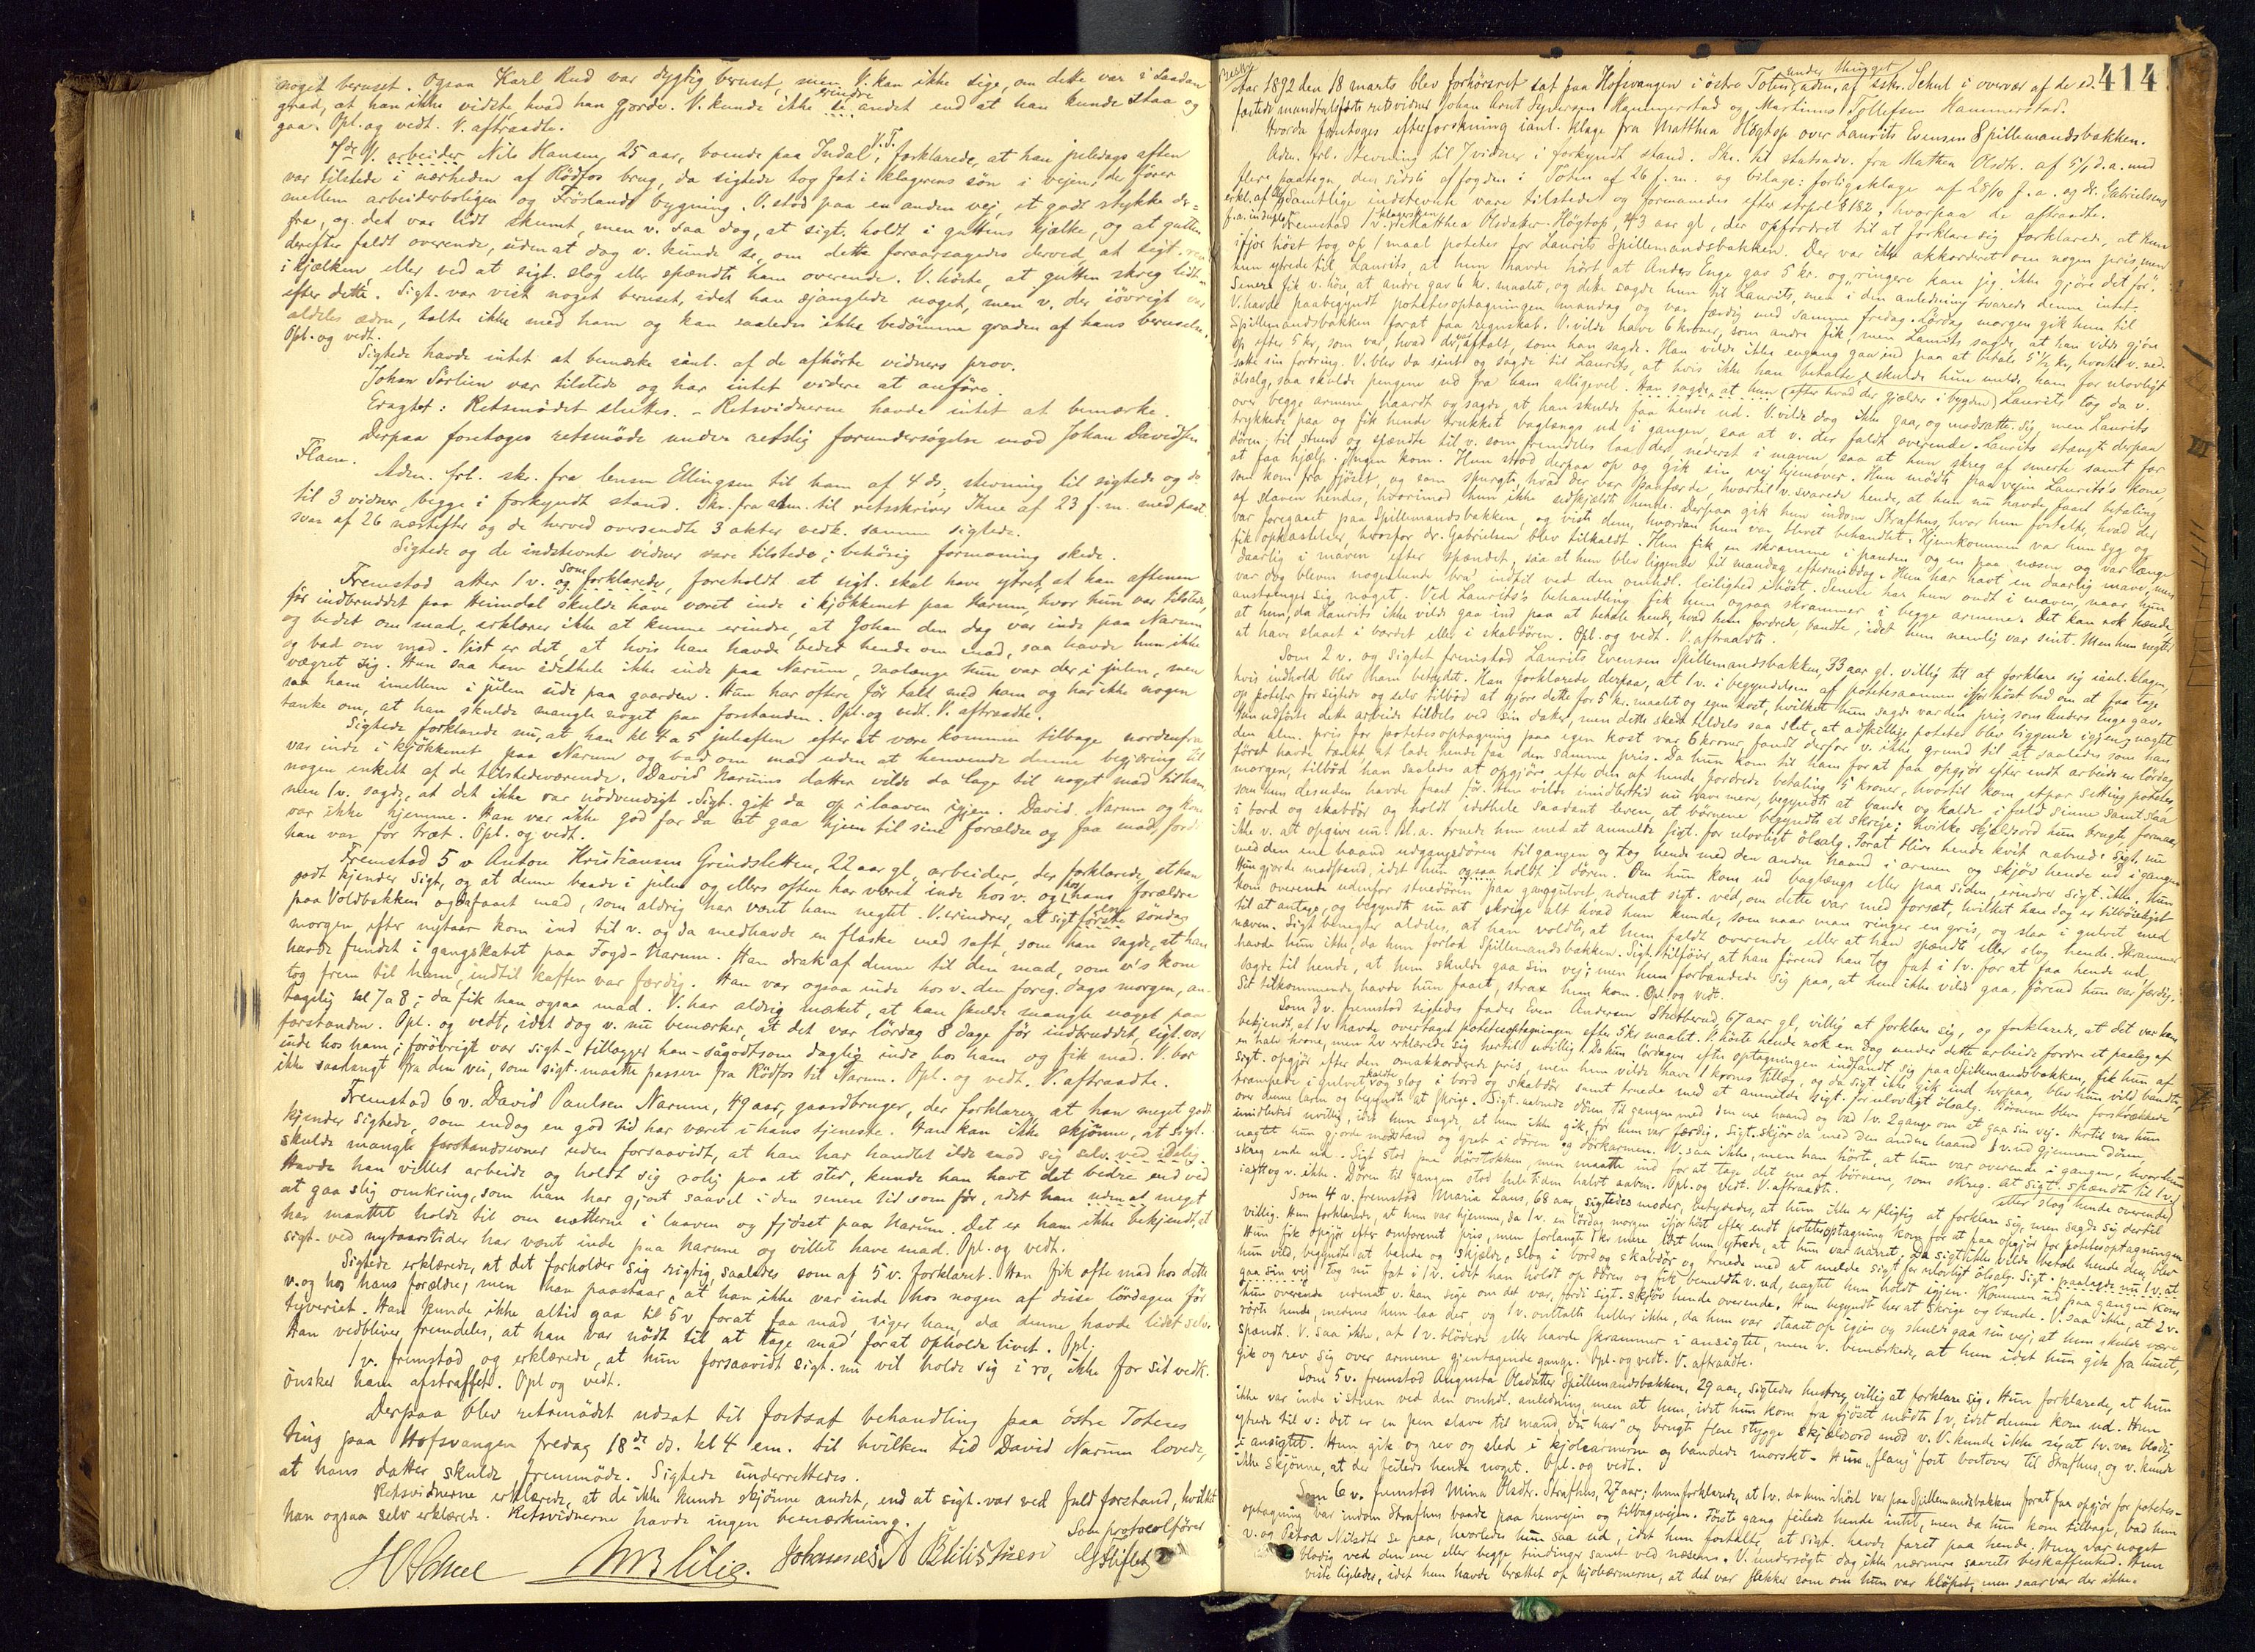 noget beruset. Ogsaa Karl Rud var dygtig beruset, men V. kan ikke sige, om dette var i saadan
grad, at han ikke vidste, hvad han gjorde. V. kunde ikke erindre andet end at han kunde staa og
gaa. Opl. og vedt. V. aftraadte.
7de V. arbeider Nils Hansen, 25 aar, boende paa Indal, V. T., forklarede, at han juledags aften
var tilstede i nærheden af Rödfos brug, da sigtede tog fat i klagerens sön i vejen, der fører
mellem arbeiderboligen og Fröslands bygning. V. stod paa en anden vej, et godt stykke der-
fra, og det var lidt skumt, men v. saa dog, at sigt. holdt i guttens kjælke, og at gutten
derefter faldt overende, uden at dog v. kunde se, om dette foraarsagedes derved, at sigt.
i kjælken, eller ved at sigt. slog eller spændte ham overende. V. hörte, at gutten skreg lidt
efter dette. Sigt. var vist noget beruset, idet han sjanglede noget, men v., der iövrigt var
aldeles ædru, talte ikke med ham og kan saaledes ikke bedömme graden af hans beruselse.
Opl. og vedt.
Sigtede havde intet at bemærke ianl. af de afhörte vidners prov.
Johan Sörlien var tilstede og har intet videre at anföre.
Eragtet: Retsmödet sluttes. – Retsvidnerne havde intet at bemærke.
Derpaa foretoges retsmöde under retslig forundersögelse mod Johan Davidsen
Flaen.
Adm. frl. skr. fra lensm Ellingsen til ham af 4 ds; stevning til sigtede og do
til 3 vidner, begge i forkyndt stand. Skr. fra adm. til retsskriver Thue af 23 f. m. med paat.
svar af 26 næstefter og de herved oversendte 3 akter vedk. samme sigtede.
Sigtede og de indstevnte vidner vare tilstede; behörig formaning skede.
Fremstod atter 1 v. som forklarede, foreholdt at sigt. skal have ytret, at han aftenen
för indbruddet paa Heimdal skulde have været inde i kjökkenet paa Narum, hvor hun var tilstede,
og bedet om mad, erklærer ikke at kunne erindre, at Johan den dag var inde paa Narum
og bad om mad. Vist er det, at hvis han havde bedet hende om mad, saa havde hun ikke
vægret sig. Hun saa ham idethele ikke inde paa Narum, saalænge hun var der i julen, men
saa ham imellem i julen ude paa gaarden. Hun har oftere för talt med ham og har ikke nogen
tanke om, at han skulde mangle noget paa forstanden. Opl. og vedt. V. aftraadte.
Sigtede forklarede nu, at han kl 4 a 5 juleaften efter at være kommen tilbage nordenfra
var inde i kjökkenet paa Narum og bad om mad uden at henvende denne begjæring til
nogen enkelt af de tilstedeværende. David Narums datter vilde da lage til noget mad til ham,
men 1 v. sagde, at det ikke var nödvendigt. Sigt. gik da op i laaven igjen. David Narum og kone
var ikke hjemme. Han var ikke god for da at gaa hjem til sine forældre og faa mad, fordi
han var for træt. Opl. og vedt.
Fremstod 5 v Anton Kristiansen Grindsletten, 22 aar gl. arbeider, der forklarede, at han
godt kjender sigt, og at denne baade i julen og ellers often har været inde hos v. og hos hans forældre
paa Voldbakken og faaet mad, som aldrig har været ham negtet. V. erindrer, at sigt. förste söndags
morgen efter nytaar kom ind til v. og da medhavde en flaske med saft, som han sagde, at han
havde fundet i gangskabet paa Fogd-Narum. Han drak af denne til den mad, som v's kone
tog frem til ham, indtil kaffen var færdig. Han var ogsaa inde hos v. den foreg. dags morgen, an-
tagelig kl 7 a 8; da fik han ogsaa mad. V. har aldrig mærket, at han skulde mangle noget paa
forstanden. Opl. og vedt, idet dog v. nu bemærker, at det var lördag 8 dage för indbruddet, sigt. var
inde hos ham; forövrigt var sigt – tillægger han – sågodtsom daglig inde hos ham og fik mad. V. bor
ikke saalangt fra den vei, som sigt. maatte passere fra Rödfos til Narum. Opl. og vedt. V. aftraadte.
Fremstod 6 v. David Paulsen Narum, 49 aar, gaardbruger, der forklarer, at han meget godt
kjender sigtede, som endog en god tid har været i hans tjeneste. Han kan ikke skjönne, at sigt.
skulde mangle forstandsevner uden forsaavidt, at han har handlet ilde mod sig selv ved idelig
Havde han villet arbeide og holdt sig rolig paa et sted, kunde han havt det bedre end ved
at gaa slig omkring, som han har gjort saavel i den senere tid som för, idet han uden at meget
har maattet holde til om nætterne i laaven og fjöset paa Narum. Det er ham ikke bekjendt, at
sigt. ved nytaarstider har været inde paa Narum og villet have mad. Opl. og vedt.
Sigtede erklærede, at det forholder sig rigtig, saaledes som af 5 v. forklaret. Han fik ofte mad hos dette
v. og hos hans forældre, men han paastaar, at han ikke var inde hos nogen af disse lördagen för
tyveriet. Han kunde ikke altid gaa til 5 v forat faa mad, siger han, da denne havde lidet selv.
Han vedbliver fremdeles, at han var nödt til at tage mad forat opholde livet. Opl.
1 v. fremstod og erklærede, at hun forsaavidt sigt. nu vil holde sig i ro, ikke for sit vedk.
önsker ham afstraffet. Opl og vedt.
Derpaa blev retsmödet udsat til fortsat behandling paa östre Totens
ting paa Hofsvangen fredag 18de ds. kl 4 em. til hvilken tid David Narum lovede,
at hans datter skulde fremmöde. Sigtede underrettedes.
Retsvidnerne erklærede, at de ikke kunde skjönne andet, end at sigt. var ved fuld forstand, hvilket
han ogsaa selv erklærede. Retsvidnerne havde ingen bemærkning.
Som protocolförer
414
Aar 1892 den 18 marts blev forhörsret sat paa Hofsvangen i östre Toten under thinget, adm. af sskr. Schul i overvær af de ed-
fæstede mandtalsförte retsvidner Johan Knut Syversen Hammerstad og Martinus Tollefsen Hammerstad.
Hvorda foretoges efterforskning ianl. klage fra Matthea Högtop over Laurits Evensen Spillemandsbakken.
Adm. frl. stevning til 7 vidner i forkyndt stand. Skr. til statsadv. fra Mathea Olsdtr. af 5/1 d. a. med
flere paategn. den sidste af fogden i Toten af 26 f. m. og bilage: forligsklage af 28/10 f. a. og dr. Gabrielsens
erkl. af Samtlige indstevnte vare tilstede og formanedes efter strprl § 182, hvorpaa de aftraadte.
Fremstod 1 v. klagersken Matthea Olsdater Högtop, 43 aar gl, der opfordret til at forklare sig forklarede, at hun
ifjor höst tog op 1 maal potetes for Laurits Spillemandsbakken. Der var ikke akkorderet om nogen pris, men
hun ytrede til Laurits, at hun havde hört at Anders Enge gav 5 kr. og "ringere kan jeg ikke gjöre det för".
Senere fik v. höre, at andre gav 6 kr. maalet, og dette sagde hun til Laurits, men i den anledning svarede denne intet.
V. havde paabegyndt potetesoptagningen mandag og var færdig med samme fredag. Lördag morgen gik hun til
Spillemandsbakken forat faa regnskab. V. vilde have 6 kroner, som andre fik, men Laurits sagde, at han vilde gjöre
op efter 5 kr, som var, hvad der var aftalt, som han sagde. Han vilde ikke engang gaa ind paa at betale 5½ kr, hvortil v. ned-
satte sin fordring. V. blev da sint og sagde til Laurits, at hvis ikke han betalte, skulde hun melde ham for ulovligt
ölsalg, saa skulde pengene ud fra ham alligevel. Han sagde, at hun (efter hvad der gjælder i bygden) Laurits tog da v.
over begge armene haardt og sagde, at han skulde faa hende ud. V. vilde dog ikke gaa, og modsatte sig, men Laurits
trykkede paa og fik hende trukket baglængs ud i gangen, saa at v. der faldt overende. Laurits stængte derpaa
dören til stuen og spændte til v. som fremdeles laa der, nederst i maven, saa at hun skreg af smerte samt for
at faa hjælp. Ingen kom. Hun stod derpaa op og gik sin vej hjemover. Hun mödte paa vejen Laurits's kone,
som kom fra fjöset, og som spurgte, hvad der var paafærde, hvortil v. svarede hende, at hun nu havde faaet betaling
af slaven hendes, hvorimod hun ikke udskjældte hende. Derpaa gik hun indom Strafhus, hvor hun fortalte, hvad der
var foregaaet paa Spillemandsbakken, og viste dem, hvordan hun var blevet behandlet. Hjemkommen var hun syg og
fik opkastelser, hvorfor dr. Gabrielsen blev tilkaldt. Hun fik en skramme i panden og en paa næsen og var længe
daarlig i maven efter spændet, saa at hun blev liggende til mandag eftermiddag. Hun har havt en daarlig mave, men
var dog bleven nogenlunde bra, indtil ved den omhdl. leilighed ihöst. Senere har hun ondt i maven, naar hun
anstrænger sig noget. Ved Laurits's behandling fik hun ogsaa skrammer i begge armene. Det kan nok hende,
at hun, da Laurits ikke vilde gaa ind paa at betale hende, hvad hun fordrede, bandte, idet hun nemlig var sint. Men hun negter
at have slaaet i bordet eller i skabdören. Opl. og vedt. V. aftraadte.
Som 2 v. og sigtet fremstod Laurits Evensen Spillemandsbakken, 33 aar gl. villig til at forklare sig ianl. klagen,
hvis indhold blev ham betydet. Han forklarede derpaa, at 1 v. i begyndelsen af potetesaannen ifjor höst bad om at faa tage
op poteter for sigtede og selv tilböd at gjöre dette for 5 kr. maalet og egen kost, hvilket hun sagde var den pris som Anders Enge gav.
Hun udförte dette arbeide tildels ved sin datter, men dette skede tildels saa slet, at adskillige potetes blev liggende igjen og nagtet
den alm. pris for potetesoptagning paa egen kost var 6 kroner, fandt derfor v. ikke grund til at saaledes som han
först havde tænkt at lade hende faa den samme pris. Da hun kom til ham forat faa opgjör efter endt arbeide en lördag
morgen, tilböd han saaledes at opgjöre efter den af hende fordrede betaling 5 kroner, hvortil kom etpar setting potetes,
som hun desuden havde faaet för. Hun vilde imidlertid nu have mere, begyndte at bande og kalde i fuld sinne samt slaa
i bord og skabdör og holdt idethele saadant leven, at börnene begyndte at skrige; hvilke skjældsord hun brugte formaar
ikke v. at opgive nu. Bl. a. truede hun med at anmelde sigt. for ulovligt ölsalg. Forat blive hende kvit aabnede sigt. nu
med den ene haand udgangsdören til gangen og tog hende med den anden haand i armen og skjöv hende ud i gangen
Hun gjorde modstand, idet hun ogsaa holdt i dören. Om hun kom ud baglængs eller paa siden, erindrer sigt. ikke. Hun
kom overende udenfor stuedören paa ganggulvet, udenat sigt. ved, om dette var med forsæt, hvilket han dog er tilböieligst
til at antage, og begyndte nu at skrige alt hvad hun kunde, som naar man ringer en gris, og slaa i gulvet med
næven. Sigt benegter aldeles, at han voldte, at hun faldt overende, eller at han spændte eller slog hende. Skrammer
havde hun ikke, da hun forlod Spillemandsbakken. Sigt. tilföier, at han förend han tog fat i 1 v. for at faa hende ud,
sagde til hende, at hun skulde gaa sin vej; men hun forbandede sig paa, at hun ikke vilde gaa, förend hun var færdig.
Sit tilkommende havde hun faaet, strax hun kom. Opl. og vedt.
Som 3 v. fremstod sigtedes fader Even Andersen Stutterud, 67 aar gl, villig at forklare sig, og forklarede, at det var ham
bekjendt, at 1 v havde overtaget potetesoptagningen efter 5 kr maalet. V. hörte hende nok en dag under dette arbeide fordre et paalæg af
en halv krone, men 2 v erklærede sig hertil uvillig. Da hun lördagen efter optagningen indfandt sig paa Spillemandsbakken, fik hun af
sigt. opgjör efter den omakkorderede pris, men hun vilde have 1 krones tillæg, og da sigt ikke gik ind herpaa, blev hun vild, bandte,
trampede i gulvet og slog i bord og skabdör samt truede med at anmelde sigt. for ulovligt ölsalg. Börnene blev forskrækkede
over denne larm og begyndte at skrige. Sigt. aabnede dören til gangen med den ene haand og bad 1 v. 2 gange om at gaa sin vej. Hertil var hun
imidlertid uvillig, idet hun sagde, at hun ikke gik, för hun var færdig. Sigt. skjöv da med den anden haand 1 v. ud gjennem dören,
nagtet hun gjorde modstand og greb i dören og dörkarmen. V. saa ikke, men han hörte, at hun var overende i gangen, hvor hun
skreg ende ud. Sigt stod paa dörstokken, men maatte ind forat tage det ene af börnene, som skreg. At sigt. spændte til 1 v.
iagttog v. ikke. Dören til gangen stod heletiden halvt aaben. Opl. og vedt. V. aftraadte. eller slog hende overende
Som 4 v. fremstod Maria Lans, 68 aar, sigtedes moder, betydedes, at hun ikke er pligtig at forklare sig, men sagde sig dertil
villig. Hun forklarede, at hun var hjemme, da 1 v. en lördag morgen ifjor höst efter endt potetesoptagning kom for at faa opgjör for potetesoptagningen
Hun fik opgjör efter omforenet pris, men forlangte 1 kr mere idet hun ytrede, at hun var narret; Da sigt ikke vilde betale hende den, blev
hun vild, begyndte at bande og skjælde, slog i bord og skabdör og truede med at melde sigt for ulovligt ölsalg. Sigt. paalagde nu 1 v. at
gaa sin vej, tog nu fat i 1 v. idet han holdt op dören og fik bemeldte v. ud, nagtet hun holdt igjen. Kommen ud paa gangen kom
hun overende udenat v. kan sige om det var, fordi sigt. skjöv hende overende. Hun begyndte her at skrige og bande. V. saa ikke, at 2 v.
rörte hende, medens hun laa der, og 1 v. omtalte heller ikke, da hun var staaet op igjen og skulde gaa sin vej, at hun skulde være
spændt. V. saa ikke, at 1 v. blödede eller havde skrammer i ansigtet, men v. bemærkede, at hun idet hun gik fra huset,
gik og rev sig over armene gjentagende gange. Opl. og vedt. V. aftraadte.
Som 5 v. fremstod Augusta Olsdatter Spillemandsbakken, 29 aar, sigtedes hustru, villig at forklare sig. Hun forklarede, at hun
ikke var inde i stuen ved den omhdl. anledning, men at hun, idet hun kom fra fjöset mödte 1 v, idet denne kom ud. Hun
ytrede til v: det er en pen slave til mand, du har" og brugte flere stygge skjældsord mod v. V. kunde ikke se, at 1 v. var blodig
i ansigtet. Hun gik og rev og sled i kjoleærmerne og bandede morskt. Hun "flang" fort bortover til Strafhus, og v. kunde
ikke skjönne, at der feilede hende noget. Opl. og vedt.
Som 6 v. fremstod Mina Olsdtr. Strafhus, 27 aar; hun forklarede, at 1 v. da hun ihöst var paa Spillemandsbakken forat faa opgjör for potetes-
optagning var indom Strafhus baade paa henvejen og tilbagevejen. Förste gang feilede hende intet, men da hun kom tilbage, bad hun
v. og Petra Nilsdtr se paa, hvorledes hun saa ud, idet hun fortalte, at sigt. havde faret paa hende. Hun var noget
blodig ved den ene eller begge tindinger samt ved næsen. V. undersögte dog ikke nærmere saarets beskaffenhed. Hun
viste ligeledes, idet hun havde brættet op kjoleærmerne, at det var flekker som om hun var klöpet, men saar var der ikke.